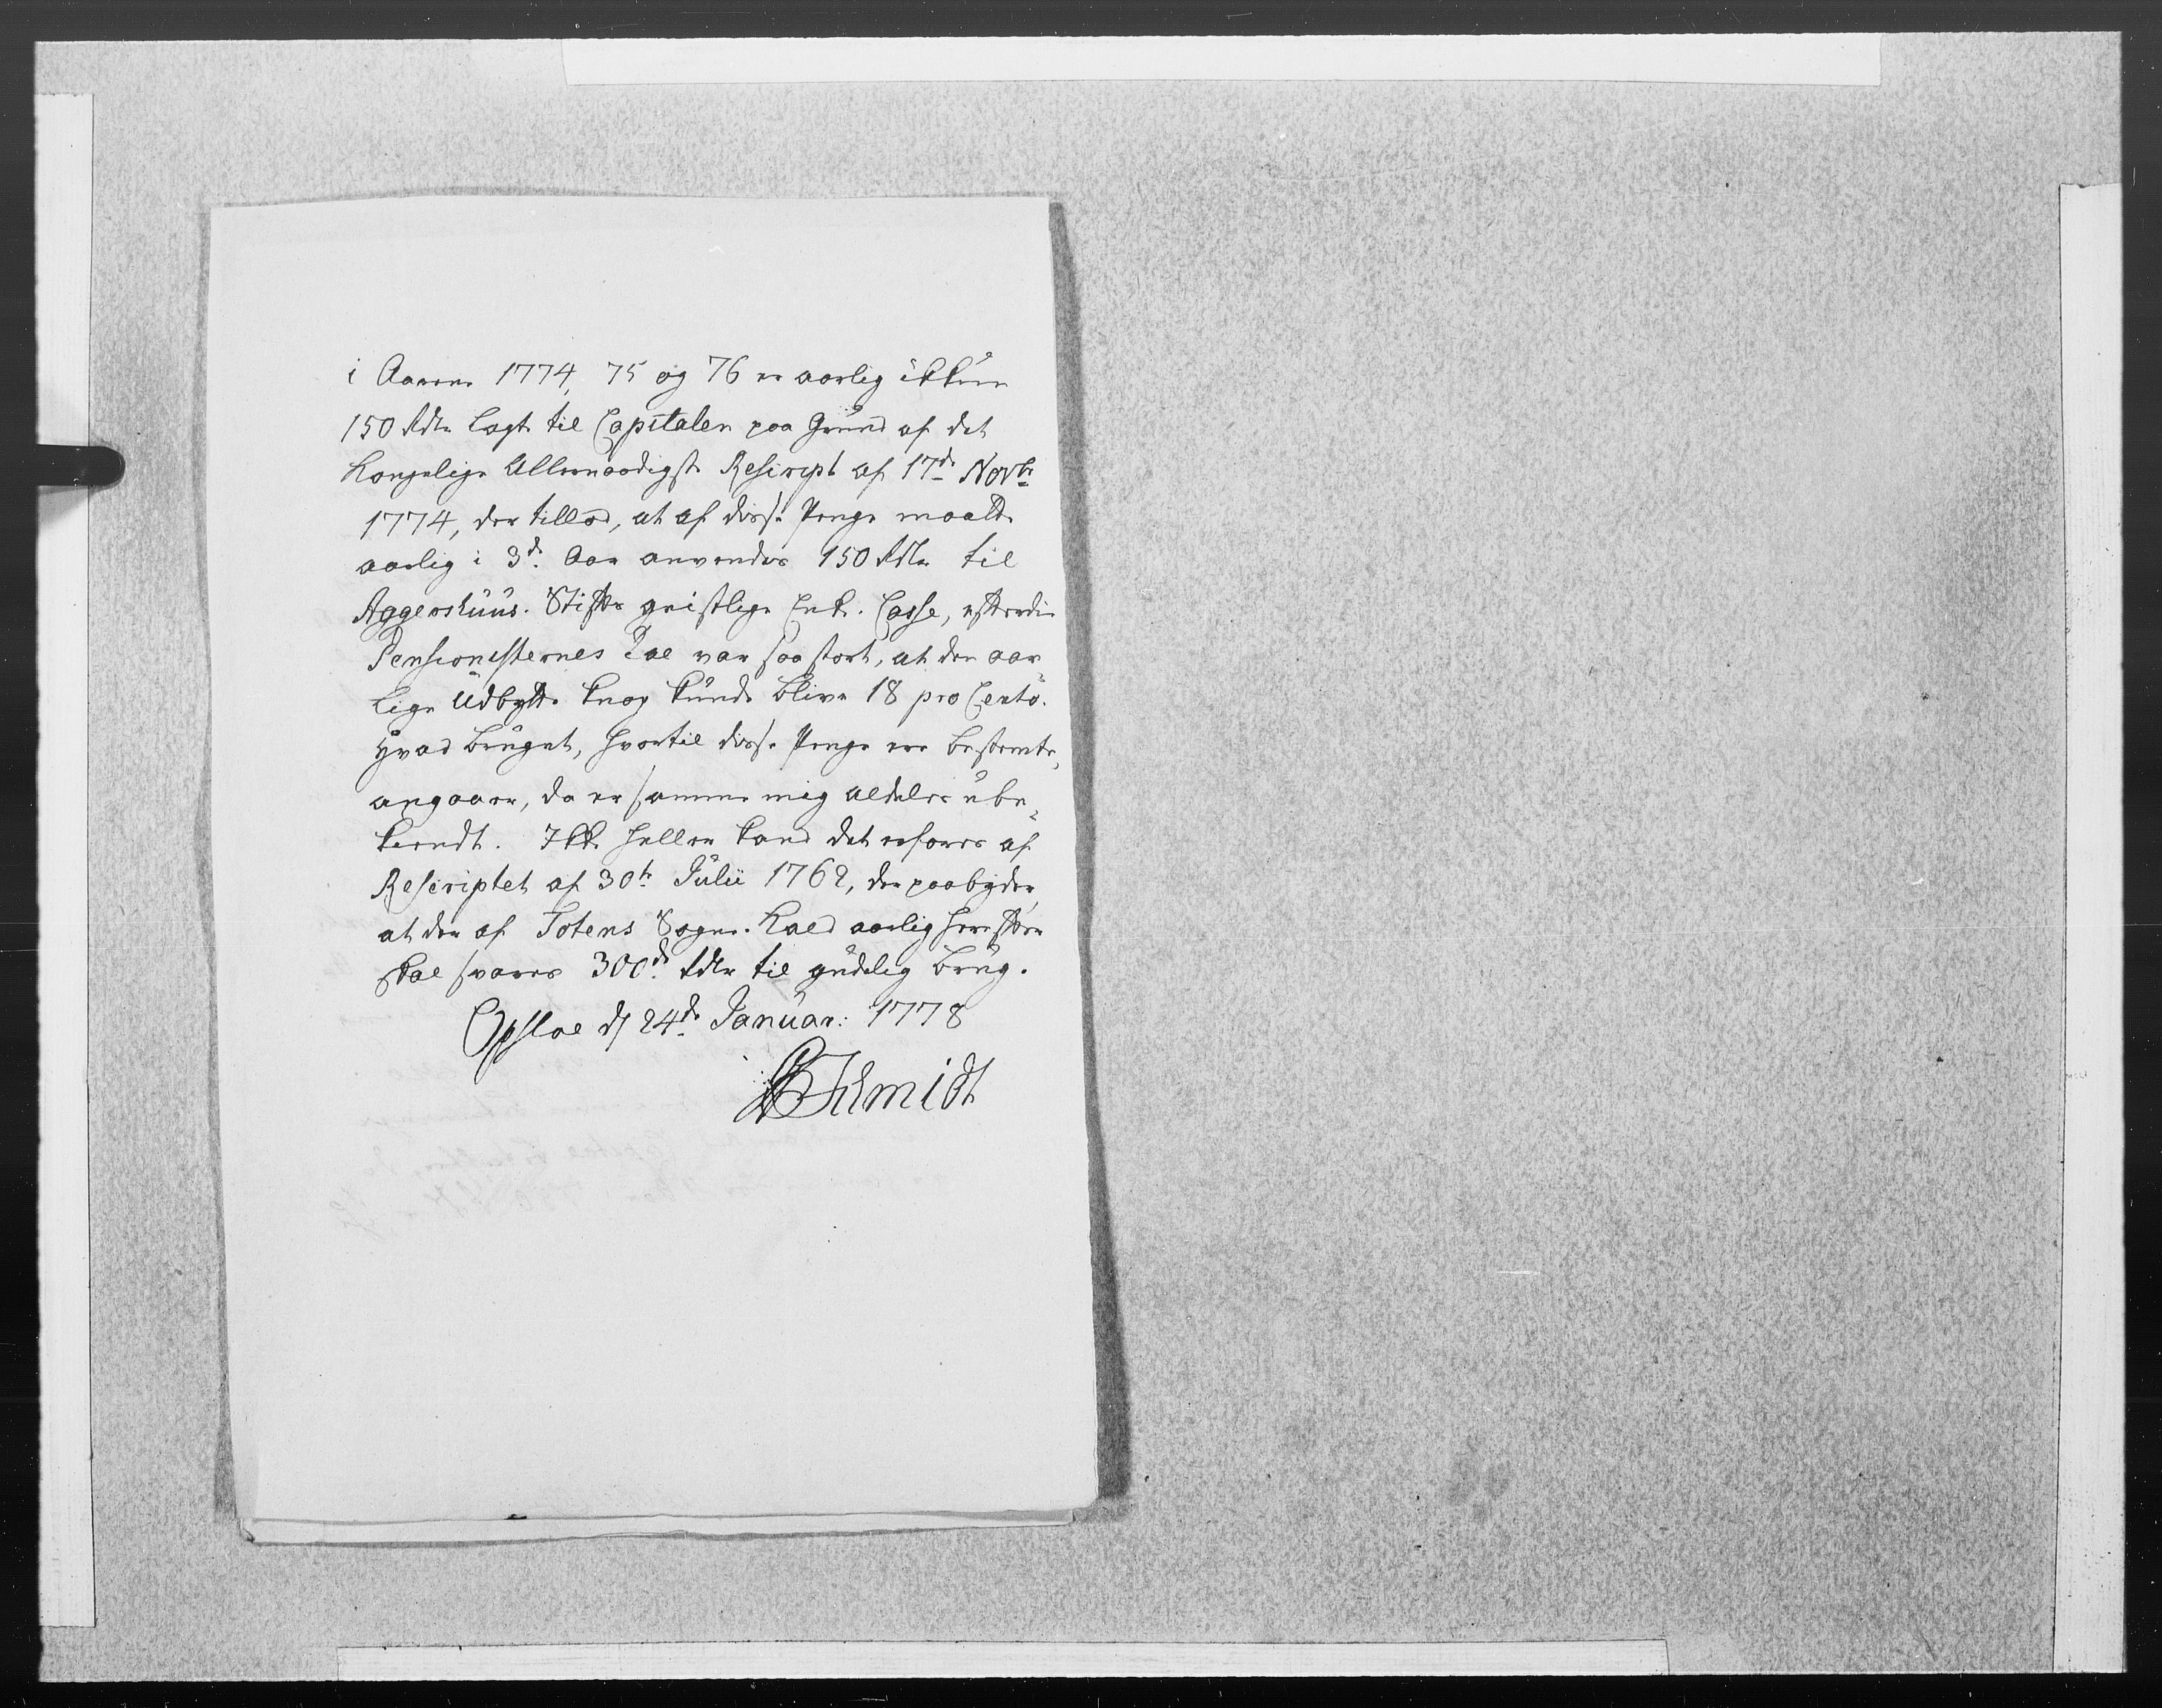 i Aarene 1774, 75 og 76 er aarlig ikkun
150 Rdlr lagt til Capitalen paa Grund af det
Kongelige Allernaadigste Rescript af 17de Novbr
1774, der tillod, at af disse Penge maatte
aarlig i 3de Aar anvendes 150 Rdlr til
Aggershuus Stifts geistlige Enke Casse, efterdi
Pensionisternes Tal var saa stort, at den aar
lige Udbytte knap kunde blive 18 pro Cento.
Hvad Bruget, hvortil disse Penge ere bestemte,
angaaer, da er samme mig aldeles ube-
kiendt. Ikke heller kand det erfares af
Rescriptet af 30te Julii 1762, der paabyder,
at der af Totens Sogne Kald aarlig herefter
skal svares 300de Rdlr til gudelig Brug.
Opsloe d 24de Januar: 1778
Schmidt